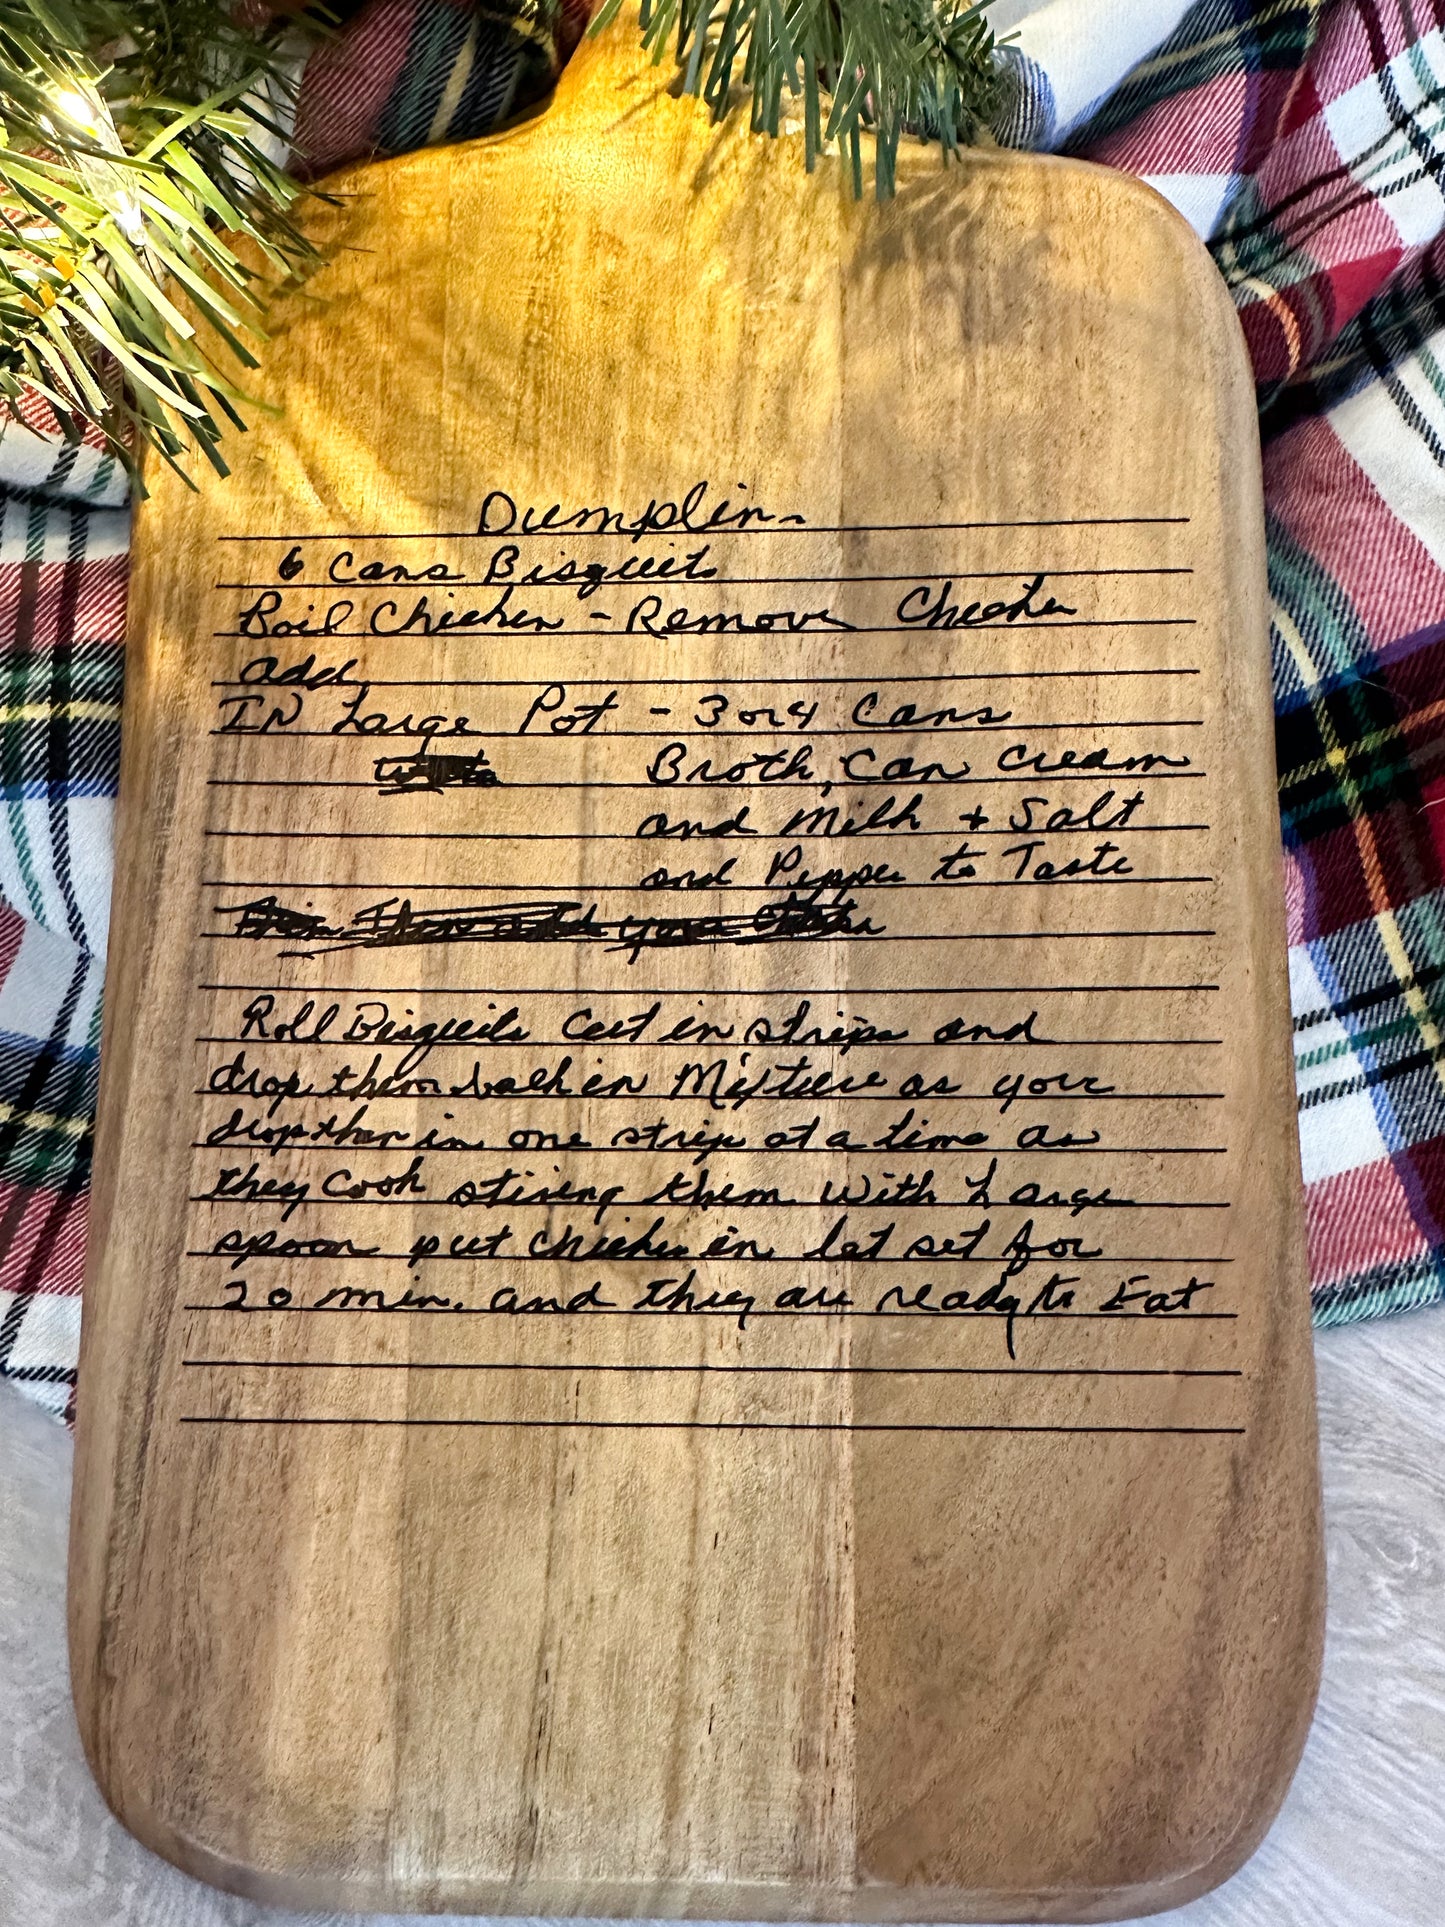 Dumplin
6 Cans Bisquits
Boil Chicken - Remove Chicken
add
IN Large Pot - 3 or 4 Cans
Broth, Can Cream
and Milk + Salt
and Pepper to Taste
Roll Bisquits Cut in strips and
drop them back in Mixture as you
drop them in one strip at a time as
they Cook stiring them with Large
spoon put Chicken in let set for
20 min. and they are ready to Eat